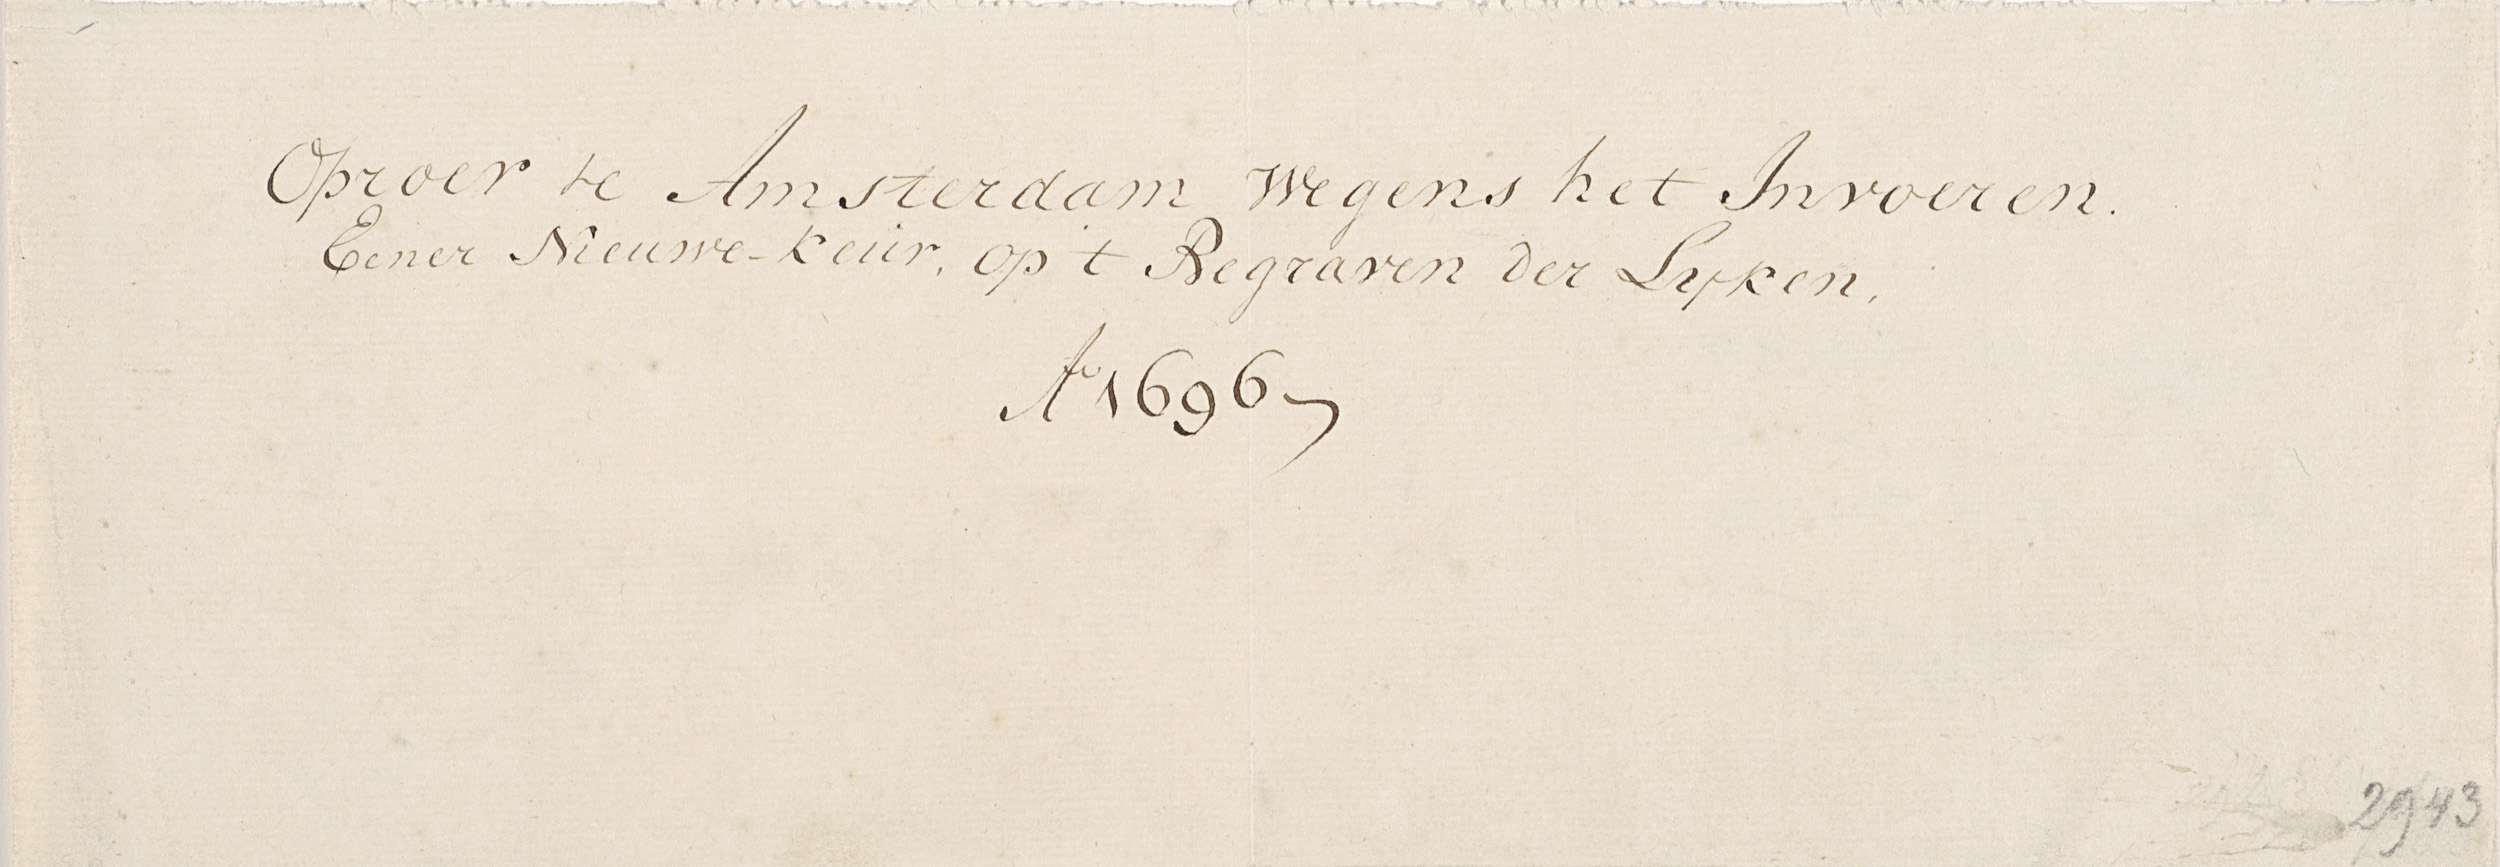 Oproer te Amsterdam Wegens het Invoeren.
Eener Nieuwe-keur, op 't Begraven der Lyken,
Ao 1696
2943